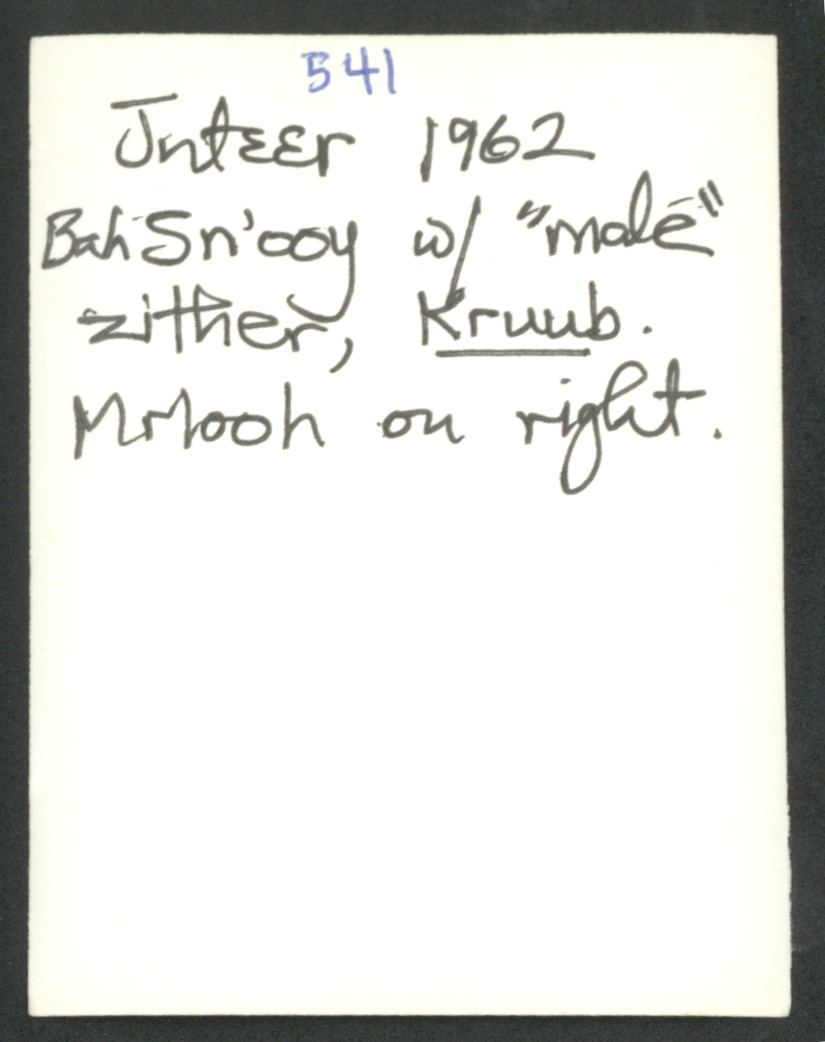 541
Jntεεr 1962
Bah Sn'ooy w/ "male"
zither, Kruub.
Mrlooh on right.